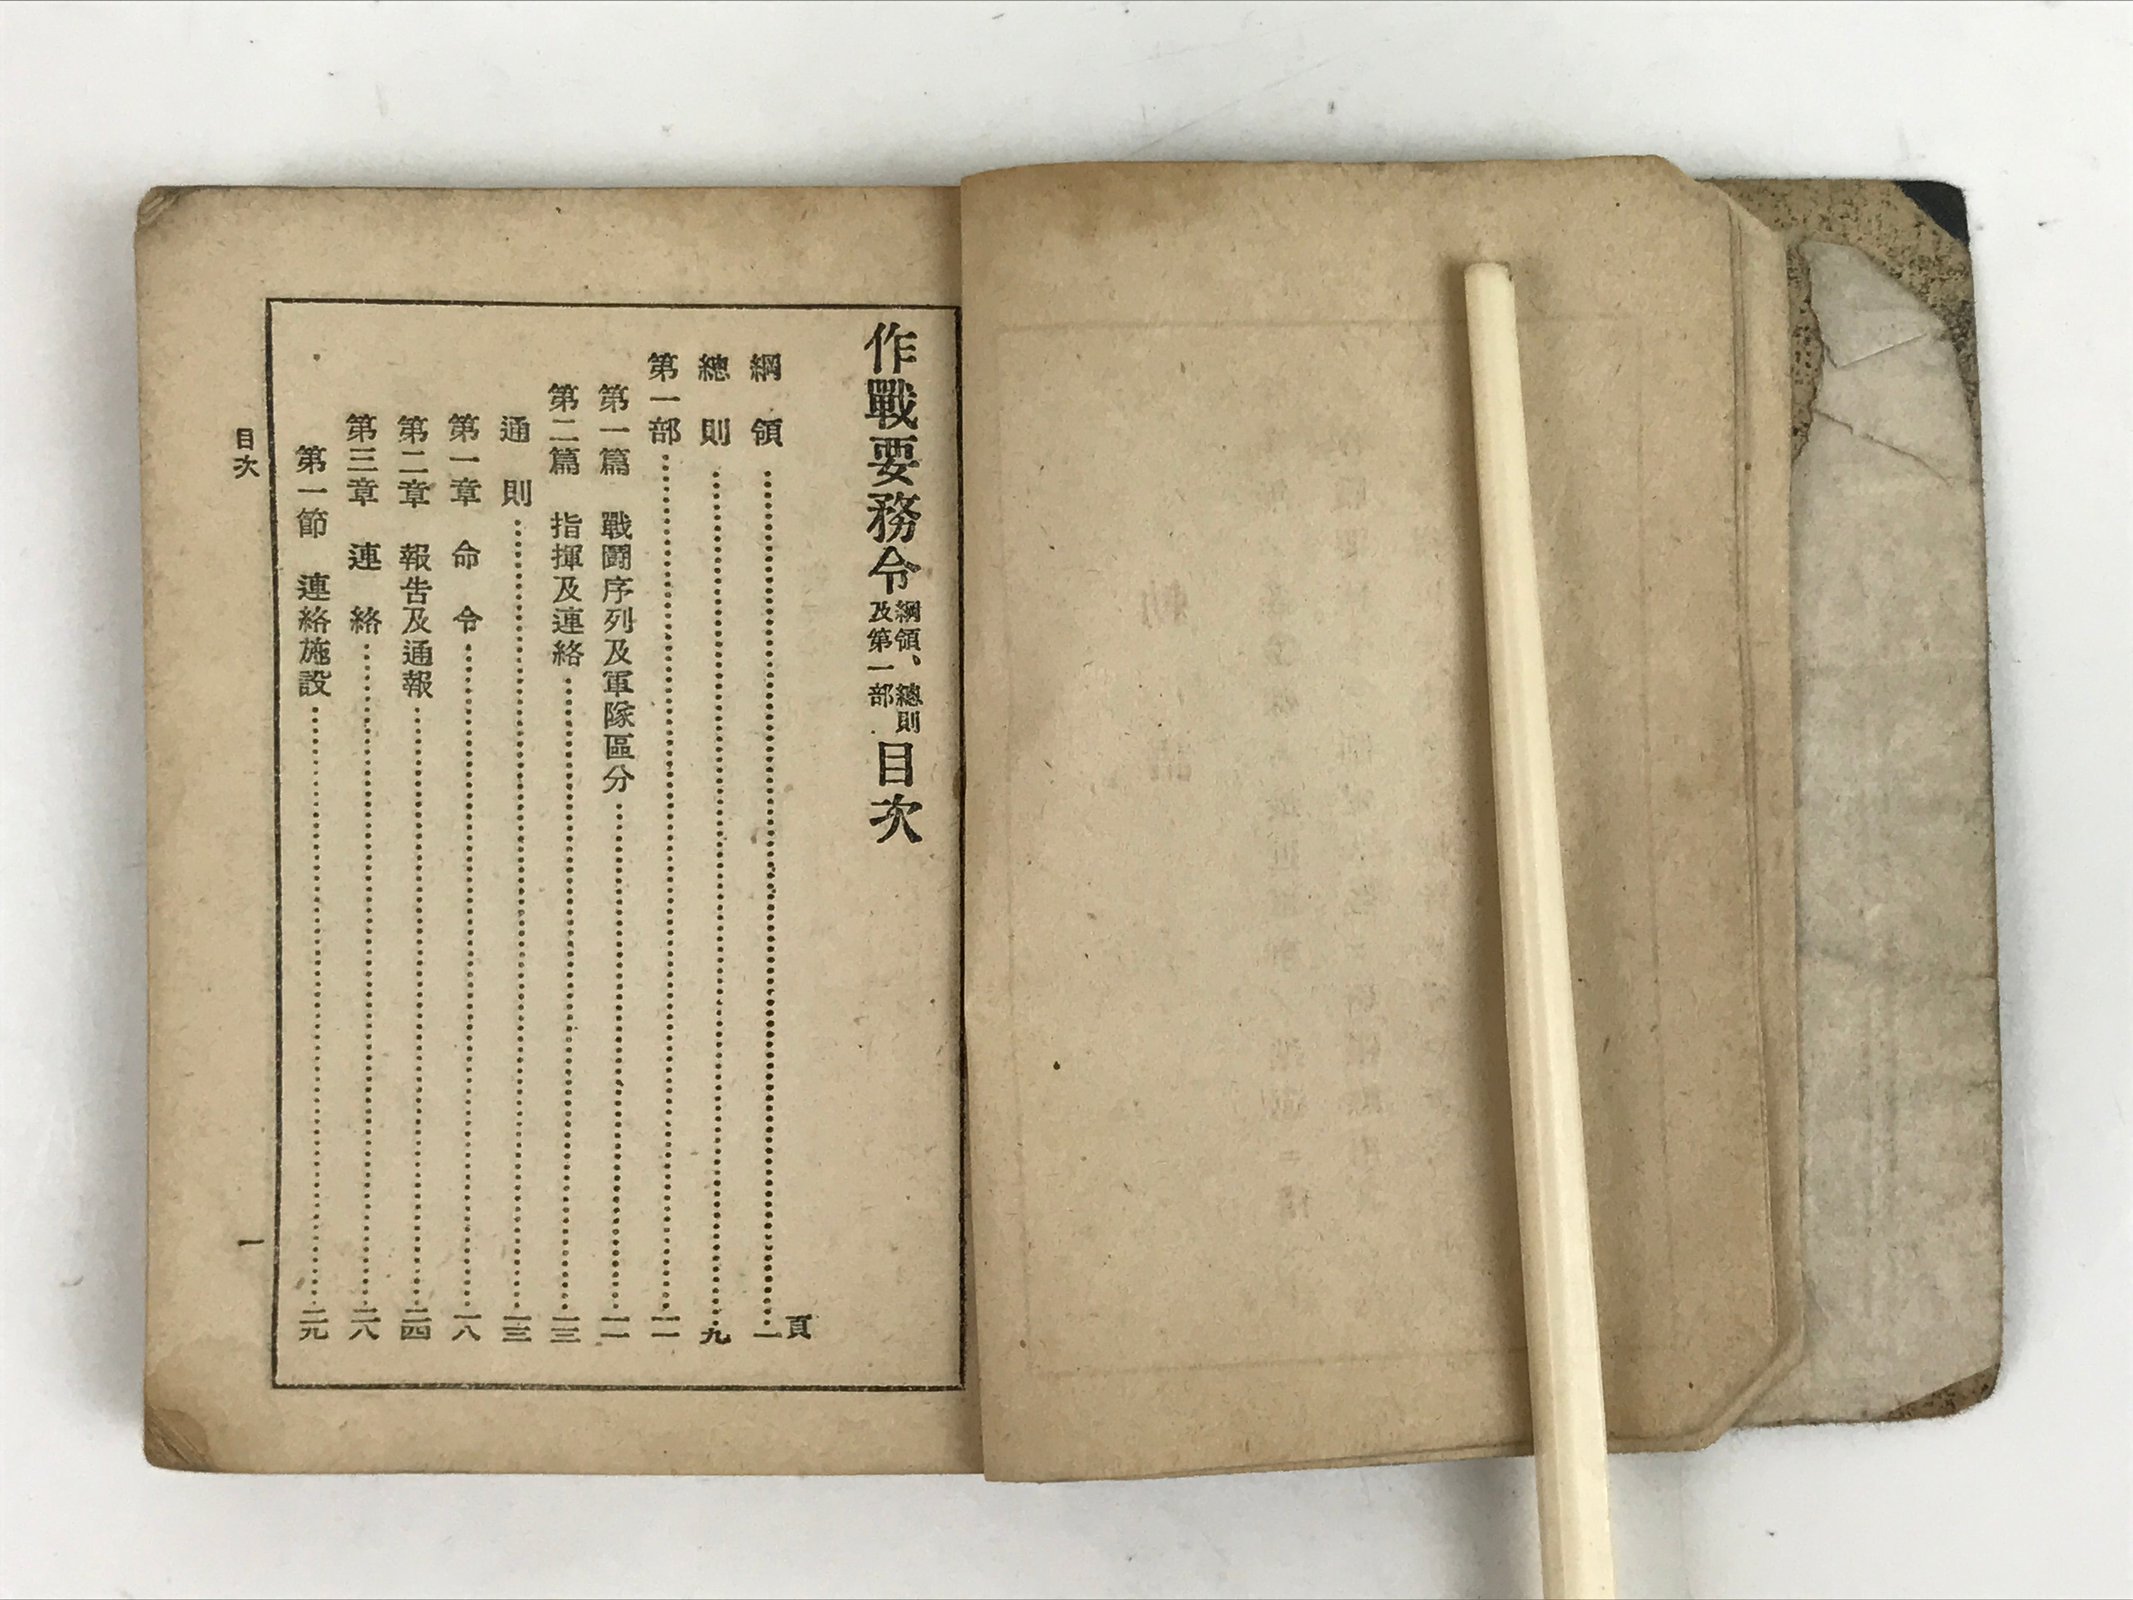 作戰要務令綱領、總則及第一部目次
頁
綱領……一
總則……九
第一部……一一
第一篇 戰鬪序列及軍隊區分……一一
第二篇 指揮及連絡……一三
通則……一三
第一章 命令……一八
第二章 報告及通報……二四
第三章 連絡……二八
第一節 連絡施設……二九
目次
一